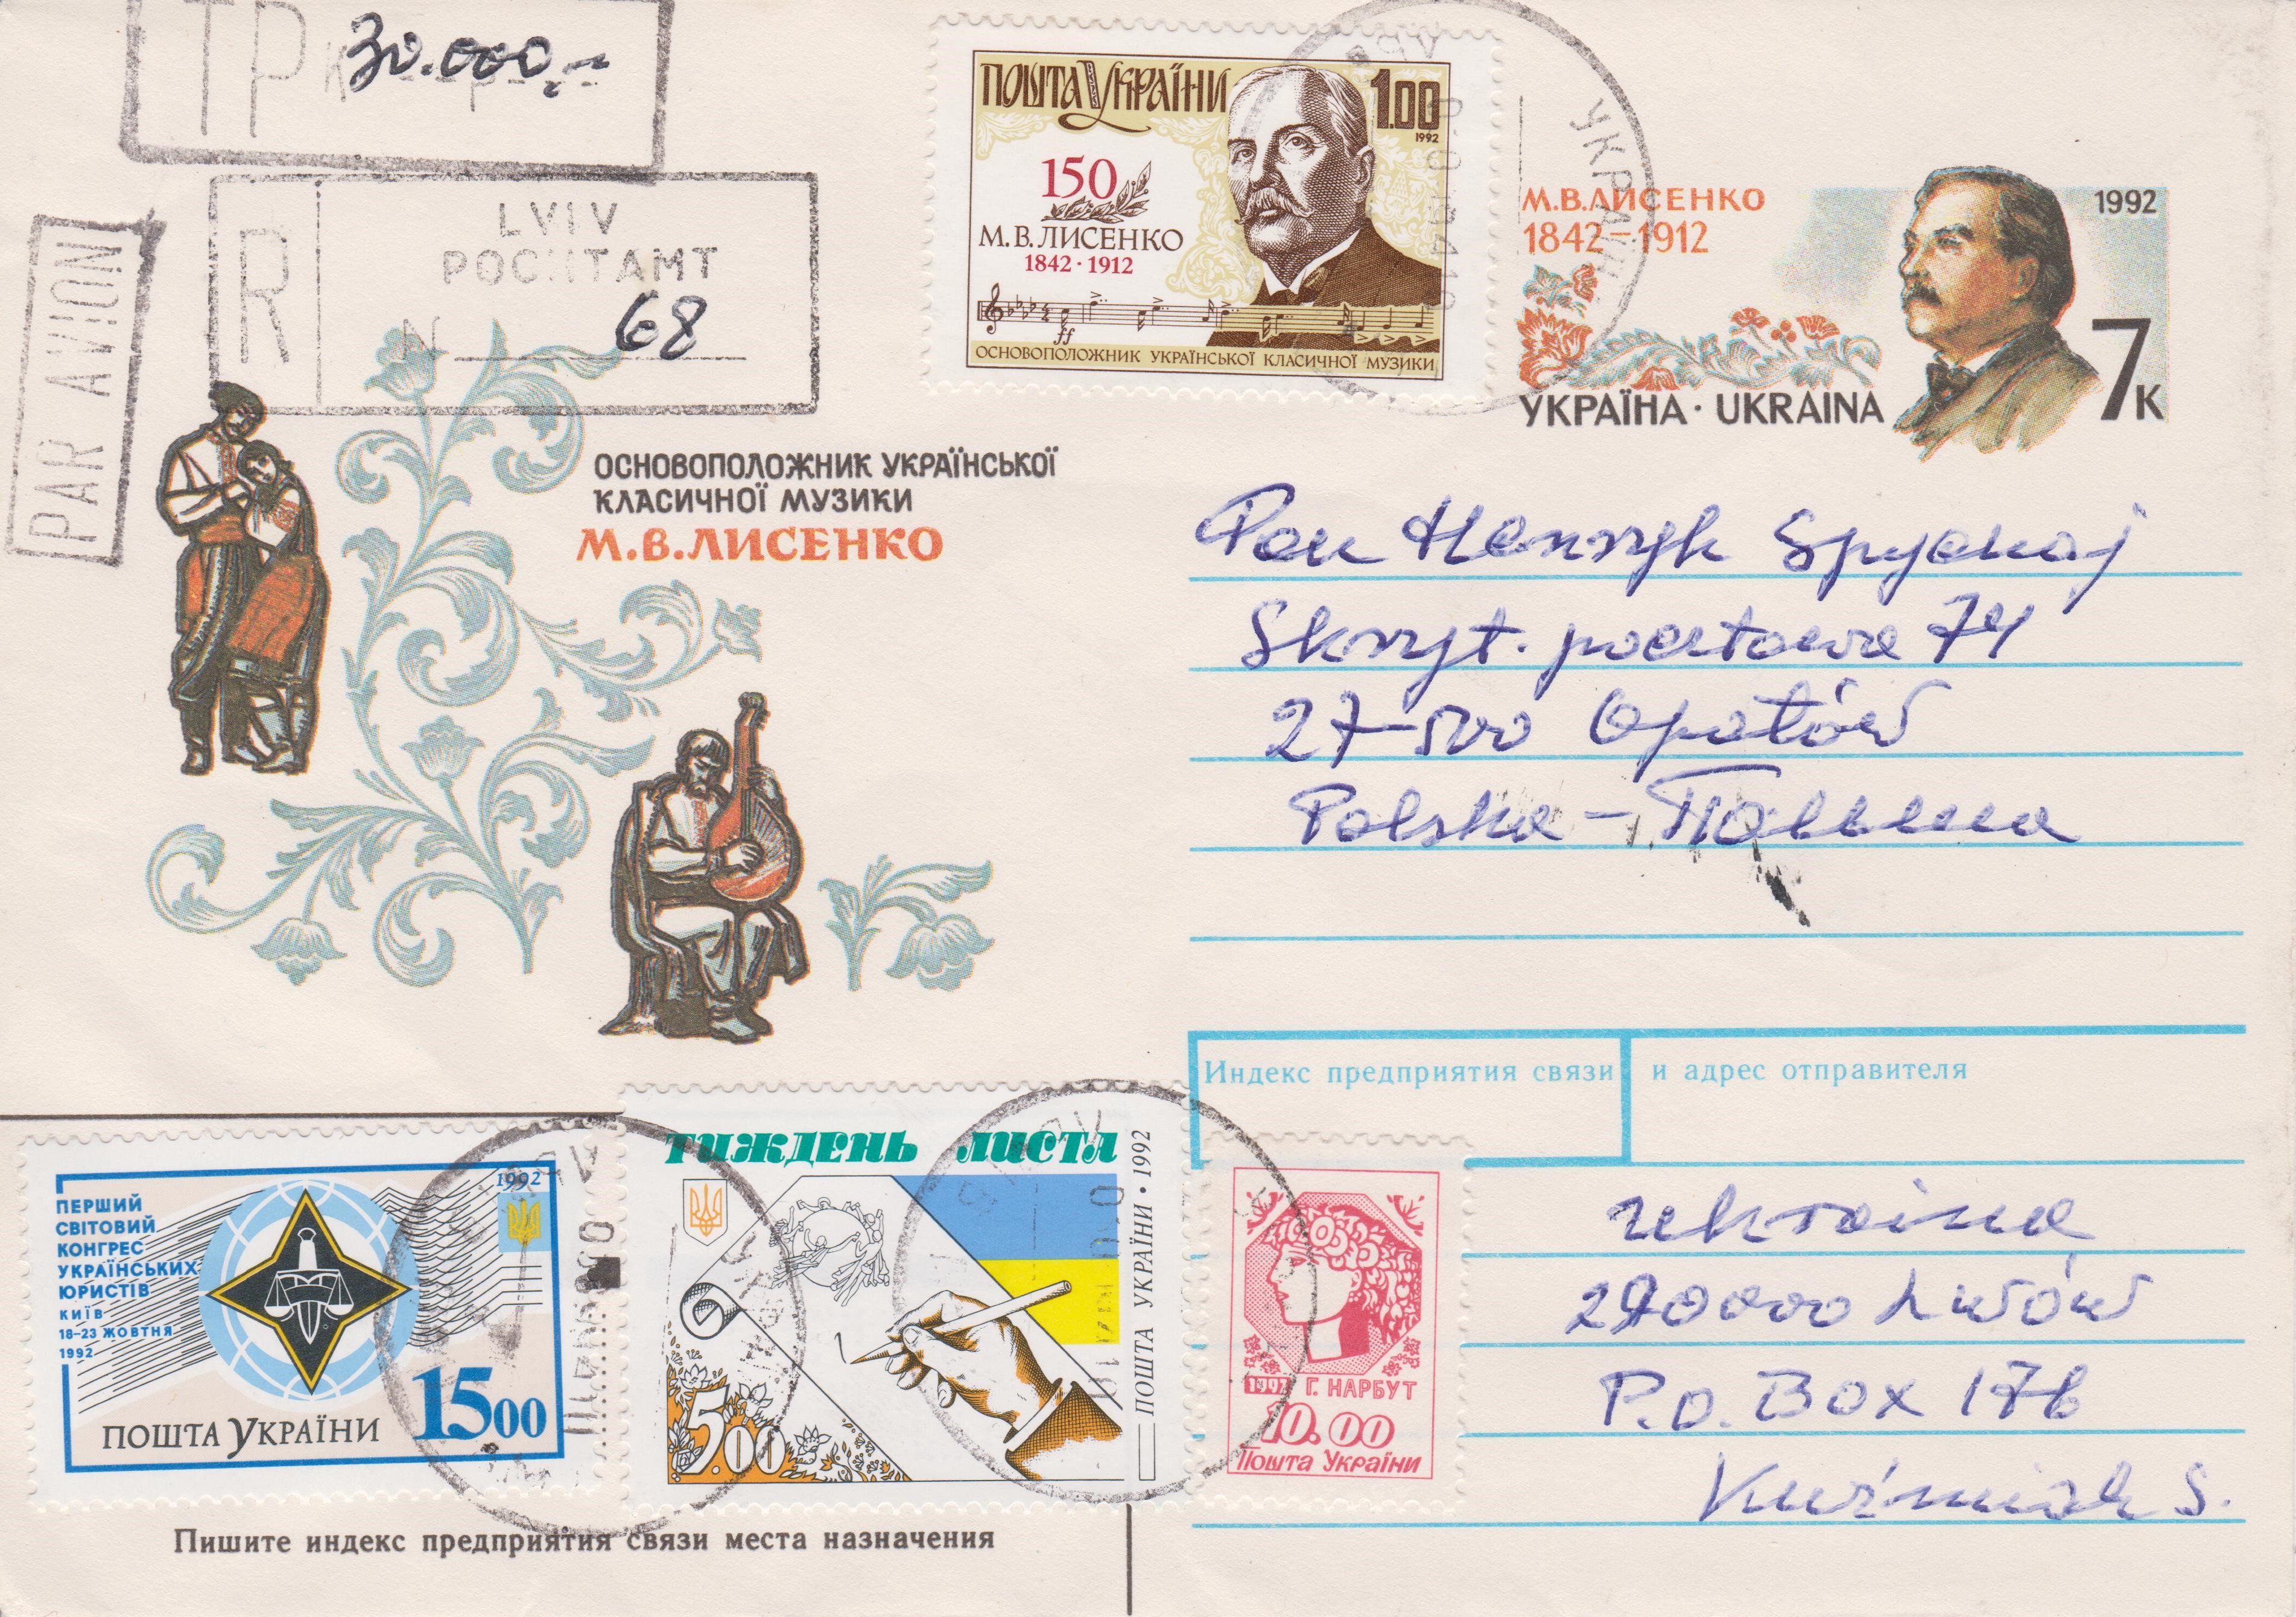 TP к 30.000,-
R
LVIV
POCHTAMT
N 68
PAR AVION
ПОШТА УКРАЇНИ
1.00
1992
150
М.В.ЛИСЕНКО
1842·1912
ff
ОСНОВОПОЛОЖНИК УКРАЇНСЬКОЇ КЛАСИЧНОЇ МУЗИКИ
М.В.ЛИСЕНКО
1842-1912
1992
7К
УКРАЇНА · UKRAINA
ОСНОВОПОЛОЖНИК УКРАЇНСЬКОЇ
КЛАСИЧНОЇ МУЗИКИ
М.В.ЛИСЕНКО
Pan Henryk Spychaj
Skryt. pocztowa 74
27-500 Opatów
Polska - Польша
Индекс предприятия связи и адрес отправителя
Ukraina
290000 Lwów
P.O. Box 176
Kuźniak S.
1992
ПЕРШИЙ
СВІТОВИЙ
КОНГРЕС
УКРАЇНСЬКИХ
ЮРИСТІВ
КИЇВ
18-23 ЖОВТНЯ
1992
ПОШТА УКРАЇНИ
1500
ТИЖДЕНЬ ЛИСТА
ПОШТА УКРАЇНИ · 1992
5.00
1992 Г. НАРБУТ
10.00
Пошта України
Пишите индекс предприятия связи места назначения